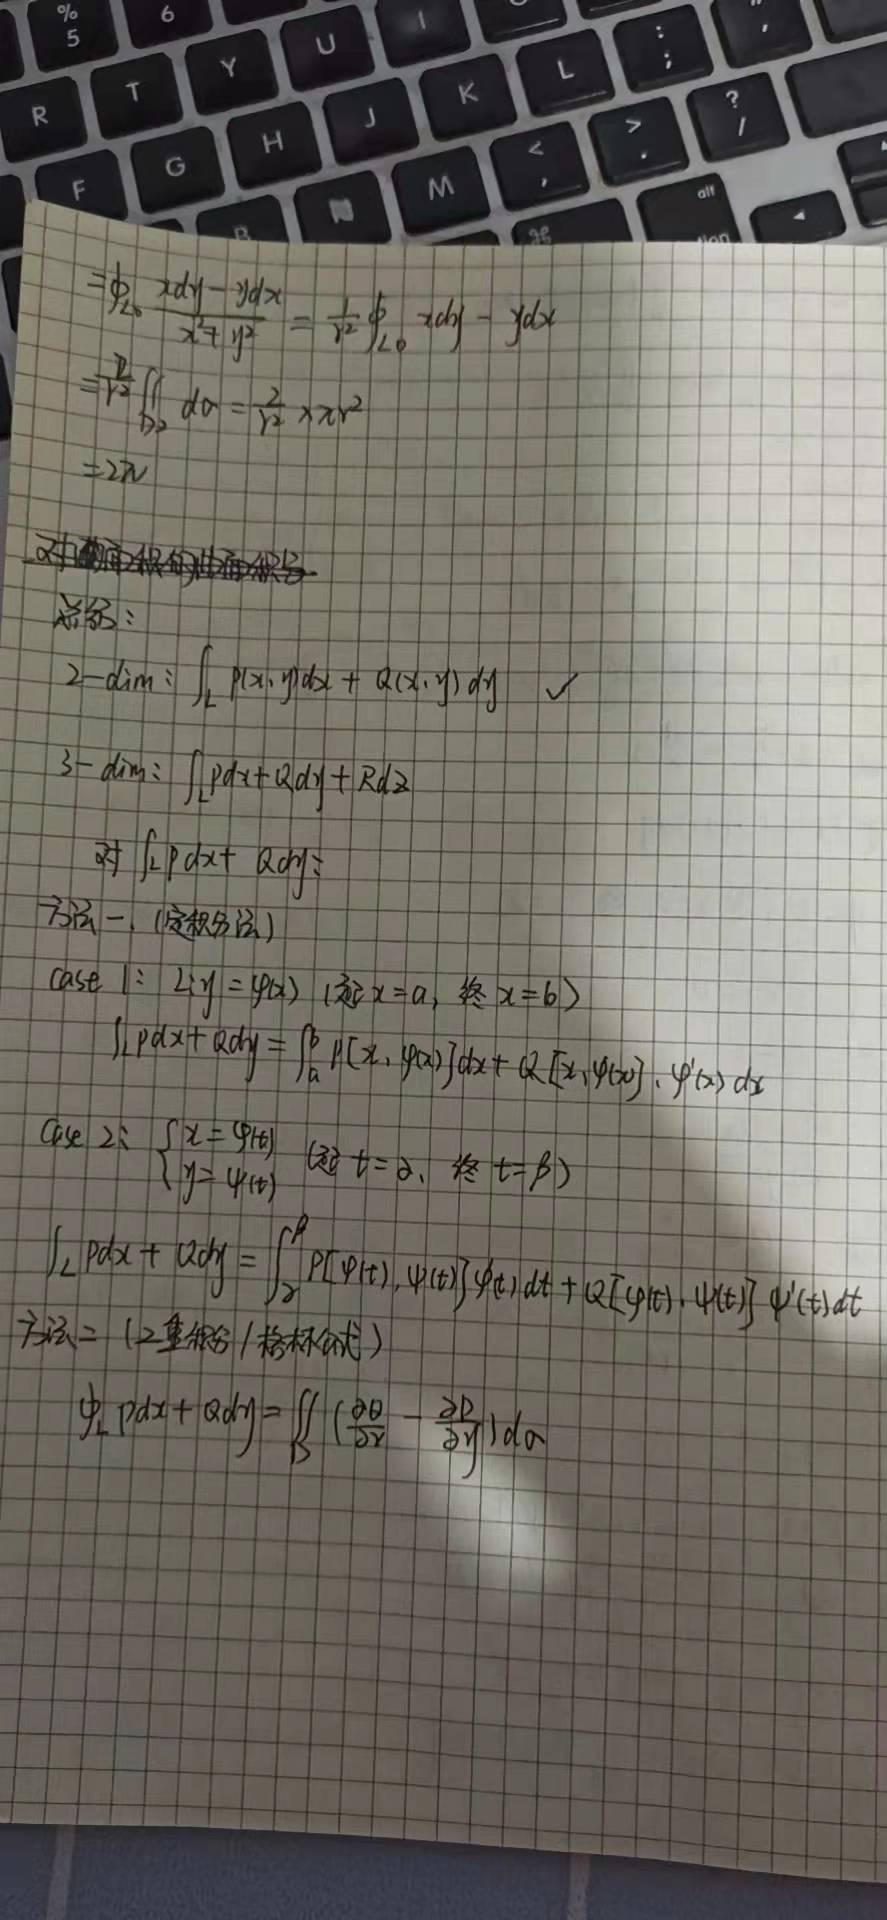 % 5 6 U I
R T Y J K L : ; " ,
F G H M < , > . ? /
B N ⌘ alt
= ∮_{L₀} (xdy − ydx)/(x² + y²) = 1/r² ∮_{L₀} xdy − ydx
= 2/r² ∬_{D₂} dσ = 2/r² × πr²
= 2π
对面积的曲面积分
总结:
2-dim: ∫_L P(x,y)dx + Q(x,y)dy ✓
3-dim: ∫_L Pdx + Qdy + Rdz
对 ∫_L Pdx + Qdy:
方法一、(定积分法)
Case 1: L: y = φ(x) (起 x=a, 终 x=b)
∫_L Pdx + Qdy = ∫_a^b P[x, φ(x)]dx + Q[x, φ(x)]·φ'(x)dx
Case 2: { x = φ(t) y = ψ(t) (起 t=α, 终 t=β)
∫_L Pdx + Qdy = ∫_α^β P[φ(t), ψ(t)]φ'(t)dt + Q[φ(t), ψ(t)]ψ'(t)dt
方法二 (2重积分/格林公式)
∮_L Pdx + Qdy = ∬_D (∂Q/∂x − ∂P/∂y)dσ